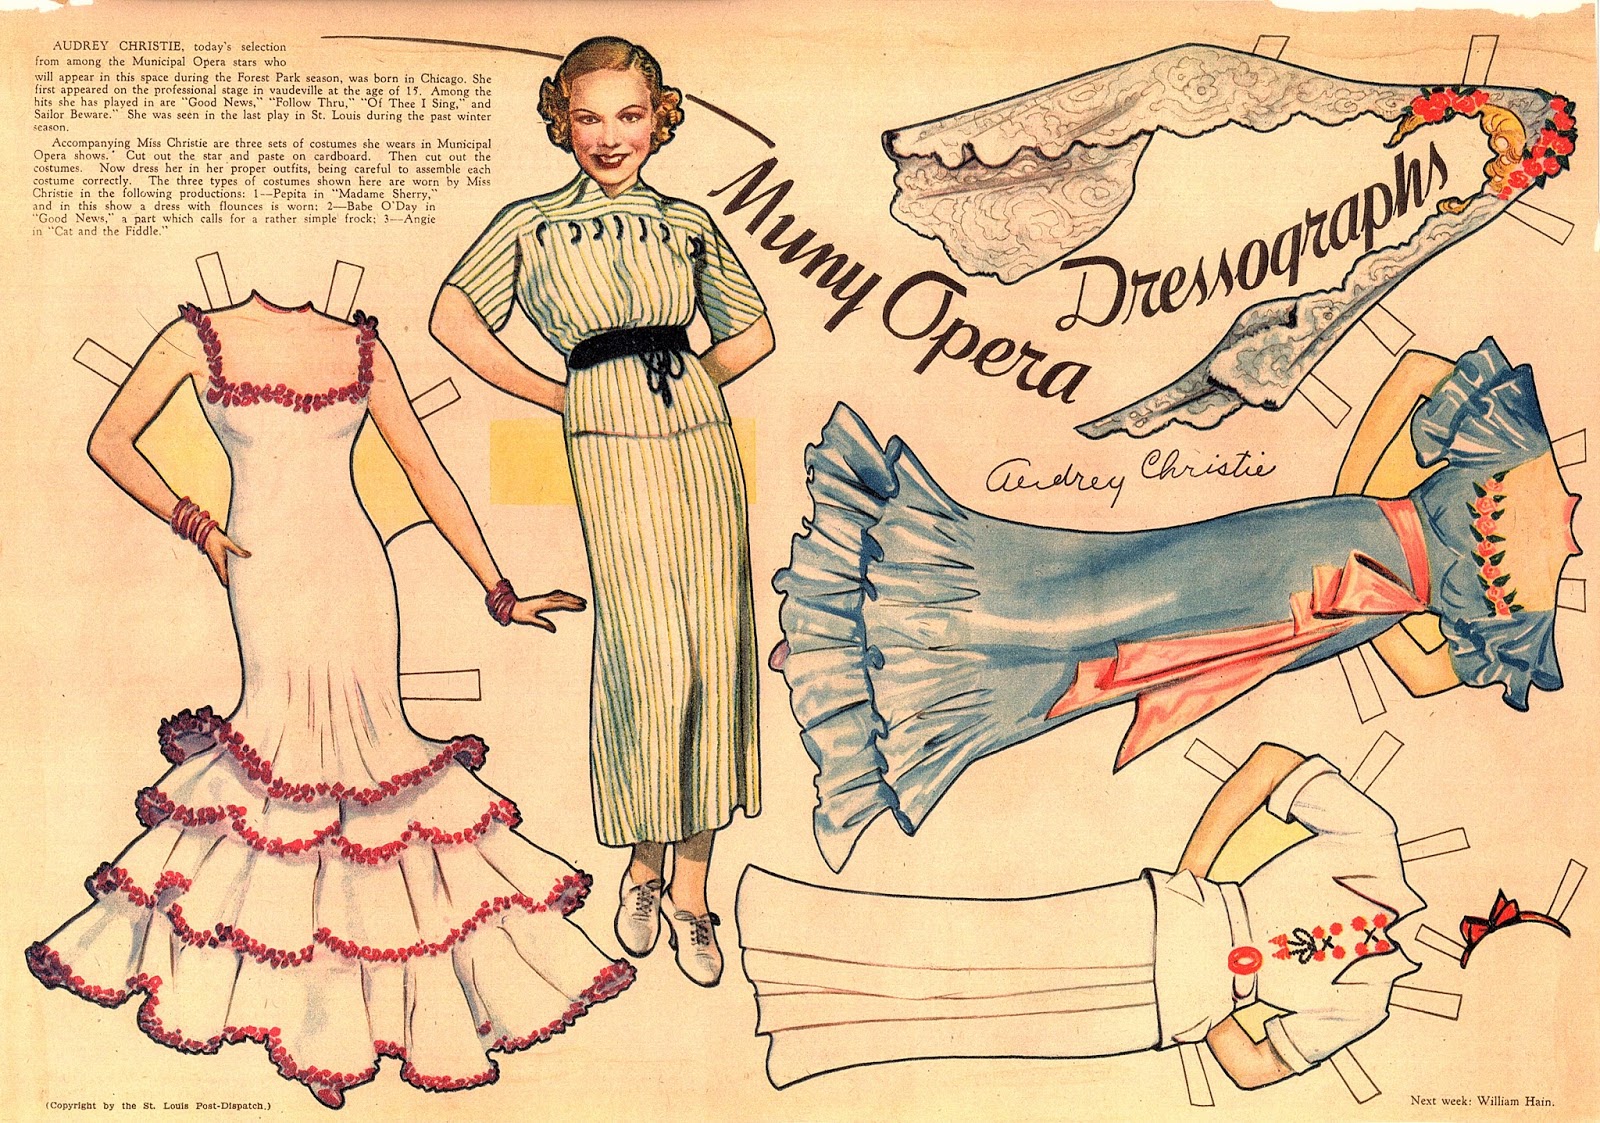 AUDREY CHRISTIE, today's selection
from among the Municipal Opera stars who
will appear in this space during the Forest Park season, was born in Chicago. She
first appeared on the professional stage in vaudeville at the age of 15. Among the
hits she has played in are "Good News," "Follow Thru," "Of Thee I Sing," and
Sailor Beware." She was seen in the last play in St. Louis during the past winter
season.
Accompanying Miss Christie are three sets of costumes she wears in Municipal
Opera shows. Cut out the star and paste on cardboard. Then cut out the
costumes. Now dress her in her proper outfits, being careful to assemble each
costume correctly. The three types of costumes shown here are worn by Miss
Christie in the following productions: 1—Pepita in "Madame Sherry,"
and in this show a dress with flounces is worn; 2—Babe O'Day in
"Good News," a part which calls for a rather simple frock; 3—Angie
in "Cat and the Fiddle."
Muny Opera Dressographs
Audrey Christie
(Copyright by the St. Louis Post-Dispatch.)
Next week: William Hain.